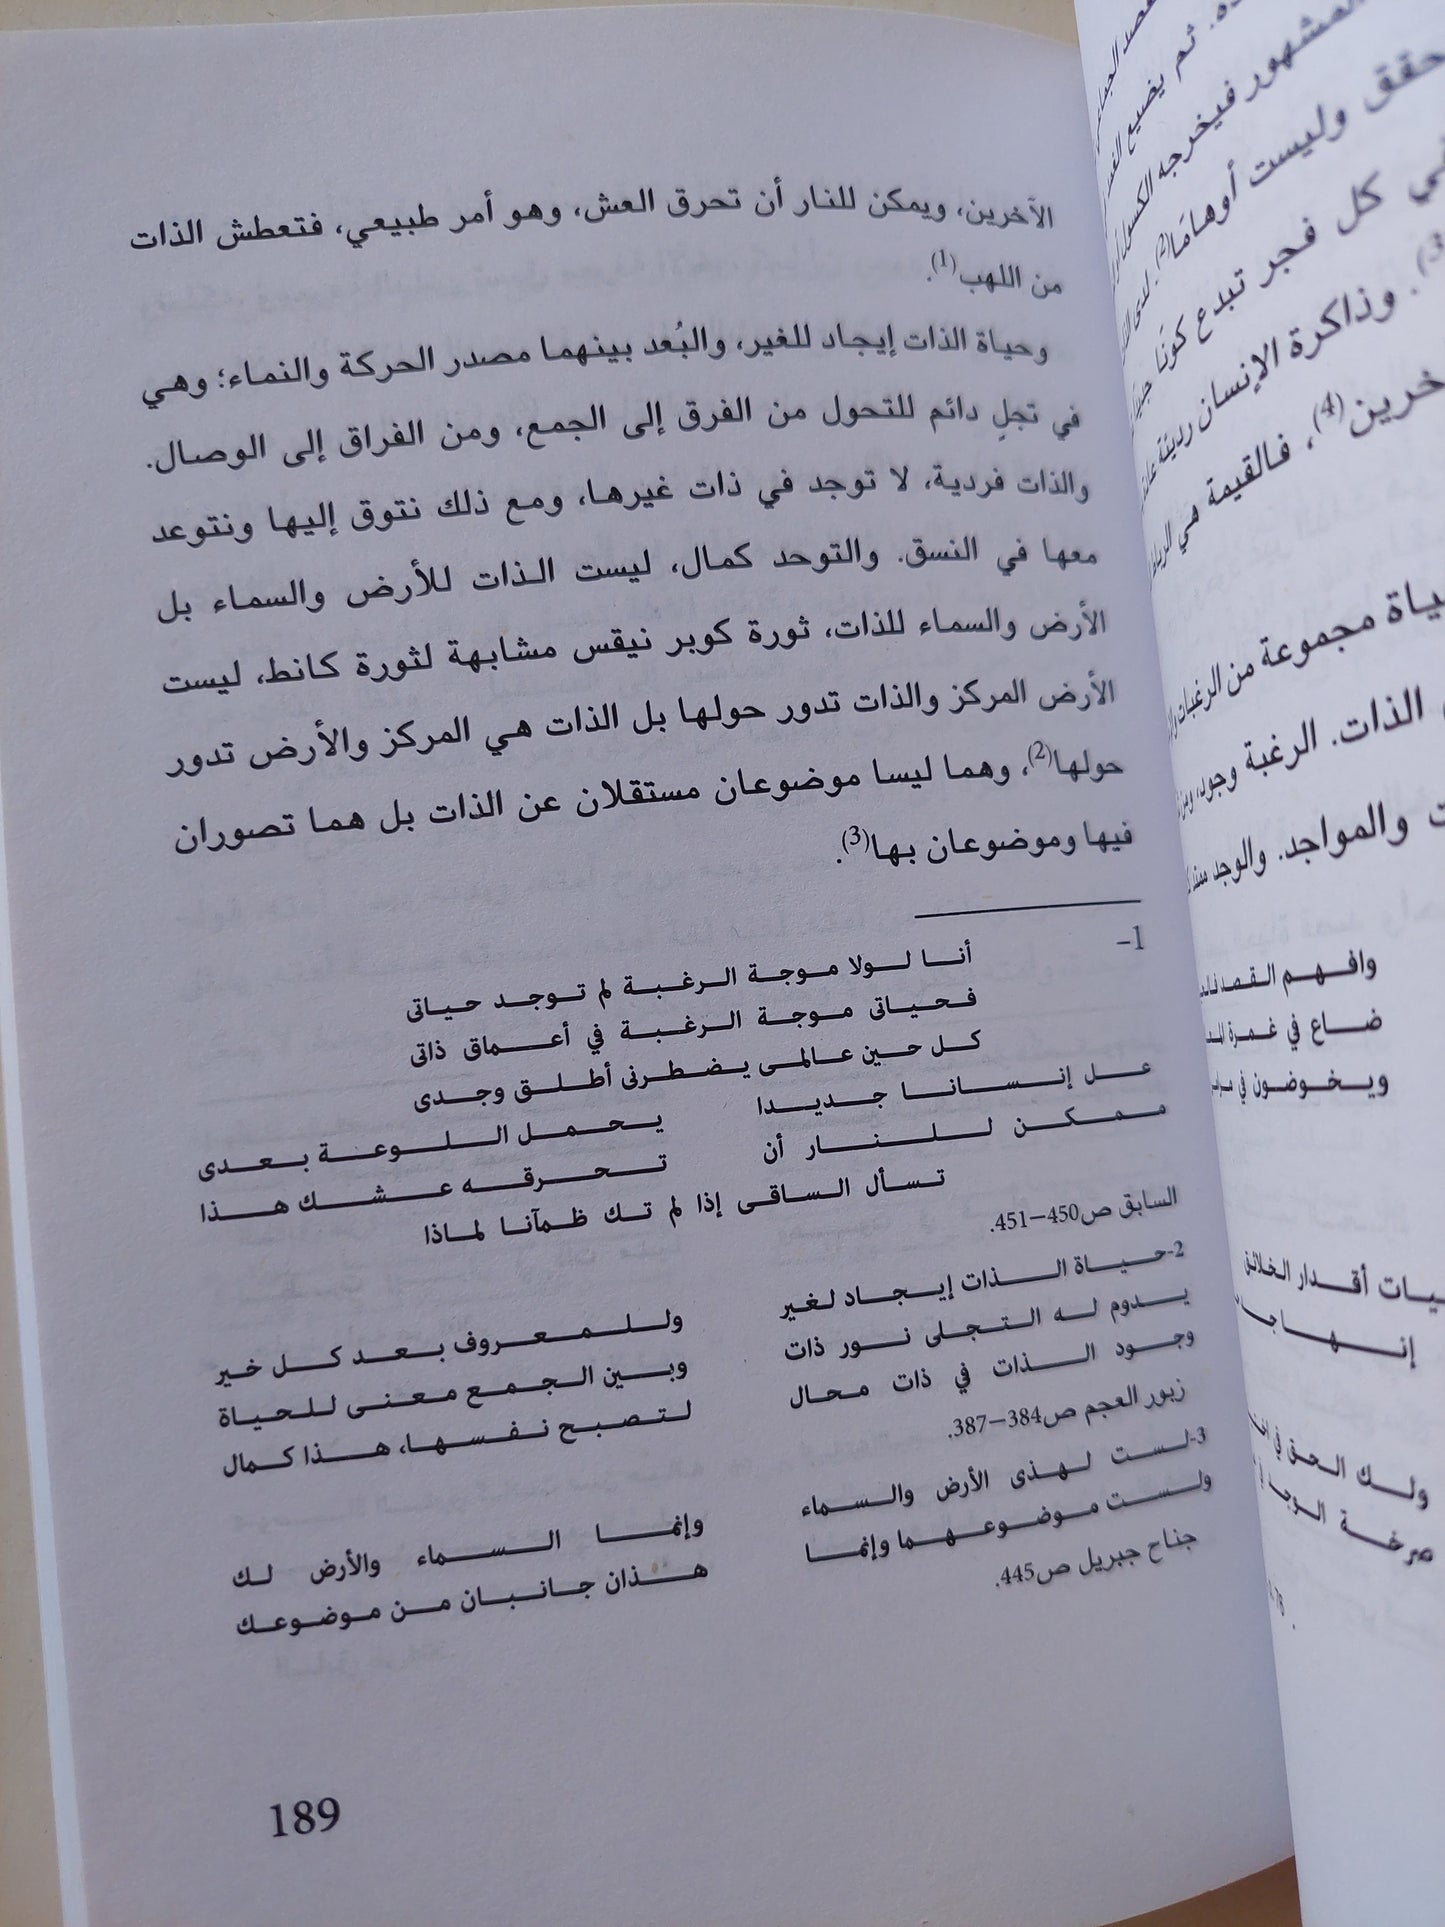 الآخرين، ويمكن للنار أن تحرق العش، وهو أمر طبيعي، فتعطش الذات
من اللهب(1).
وحياة الذات إيجاد للغير، والبُعد بينهما مصدر الحركة والنماء؛ وهي
في تجلٍ دائم للتحول من الفرق إلى الجمع، ومن الفراق إلى الوصال.
والذات فردية، لا توجد في ذات غيرها، ومع ذلك نتوق إليها ونتوعد
معها في النسق. والتوحد كمال، ليست الذات للأرض والسماء بل
الأرض والسماء للذات، ثورة كوبر نيقس مشابهة لثورة كانط، ليست
الأرض المركز والذات تدور حولها بل الذات هي المركز والأرض تدور
حولها(2)، وهما ليسا موضوعان مستقلان عن الذات بل هما تصوران
فيها وموضوعان بها(3).
1-
أنا لولا موجة الرغبة لم توجد حياتى
فحياتى موجة الرغبة في أعماق ذاتى
كل حين عالمى يضطرنى أطلق وجدى
عل إنسانا جديدا يحمل اللوعة بعدى
ممكن للنار أن تحرقه عشك هذا
تسأل الساقى إذا لم تك ظمآنا لماذا
السابق ص450–451.
2-حياة الذات إيجاد لغير وللمعروف بعد كل خير
يدوم له التجلى نور ذات وبين الجمع معنى للحياة
وجود الذات في ذات محال لتصبح نفسها، هذا كمال
زبور العجم ص384–387.
3-لست لهذى الأرض والسماء وإنما السماء والأرض لك
ولست موضوعهما وإنما هذان جانبان من موضوعك
جناح جبريل ص445.
189
ثم يضيع
المشهور فيخرجه الكسول
وليست أوهامًا(2).
كل فجر تبدع كونًا
وذاكرة الإنسان رديئة
(4)، فالقيمة هي
مجموعة من الرغبات
الذات. الرغبة وجود،
والمواجد. والوجد
وافهم القصد
ضاع في غمرة
ويخوضون في
أقدار الخلائق
ولك الحق في
صرخة الوجد